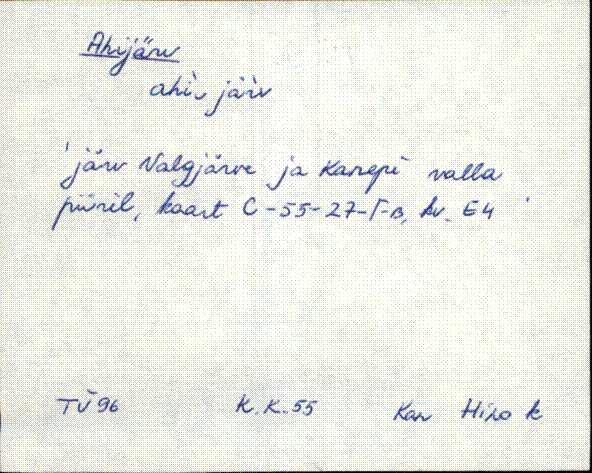 Ahijärv
ahì, järv
'järv Valgjärve ja Kanepi valla
piiril, kaart C-55-27-Г-в, kv. E4
TÜ 96 K.K. 55 Kan Hino k